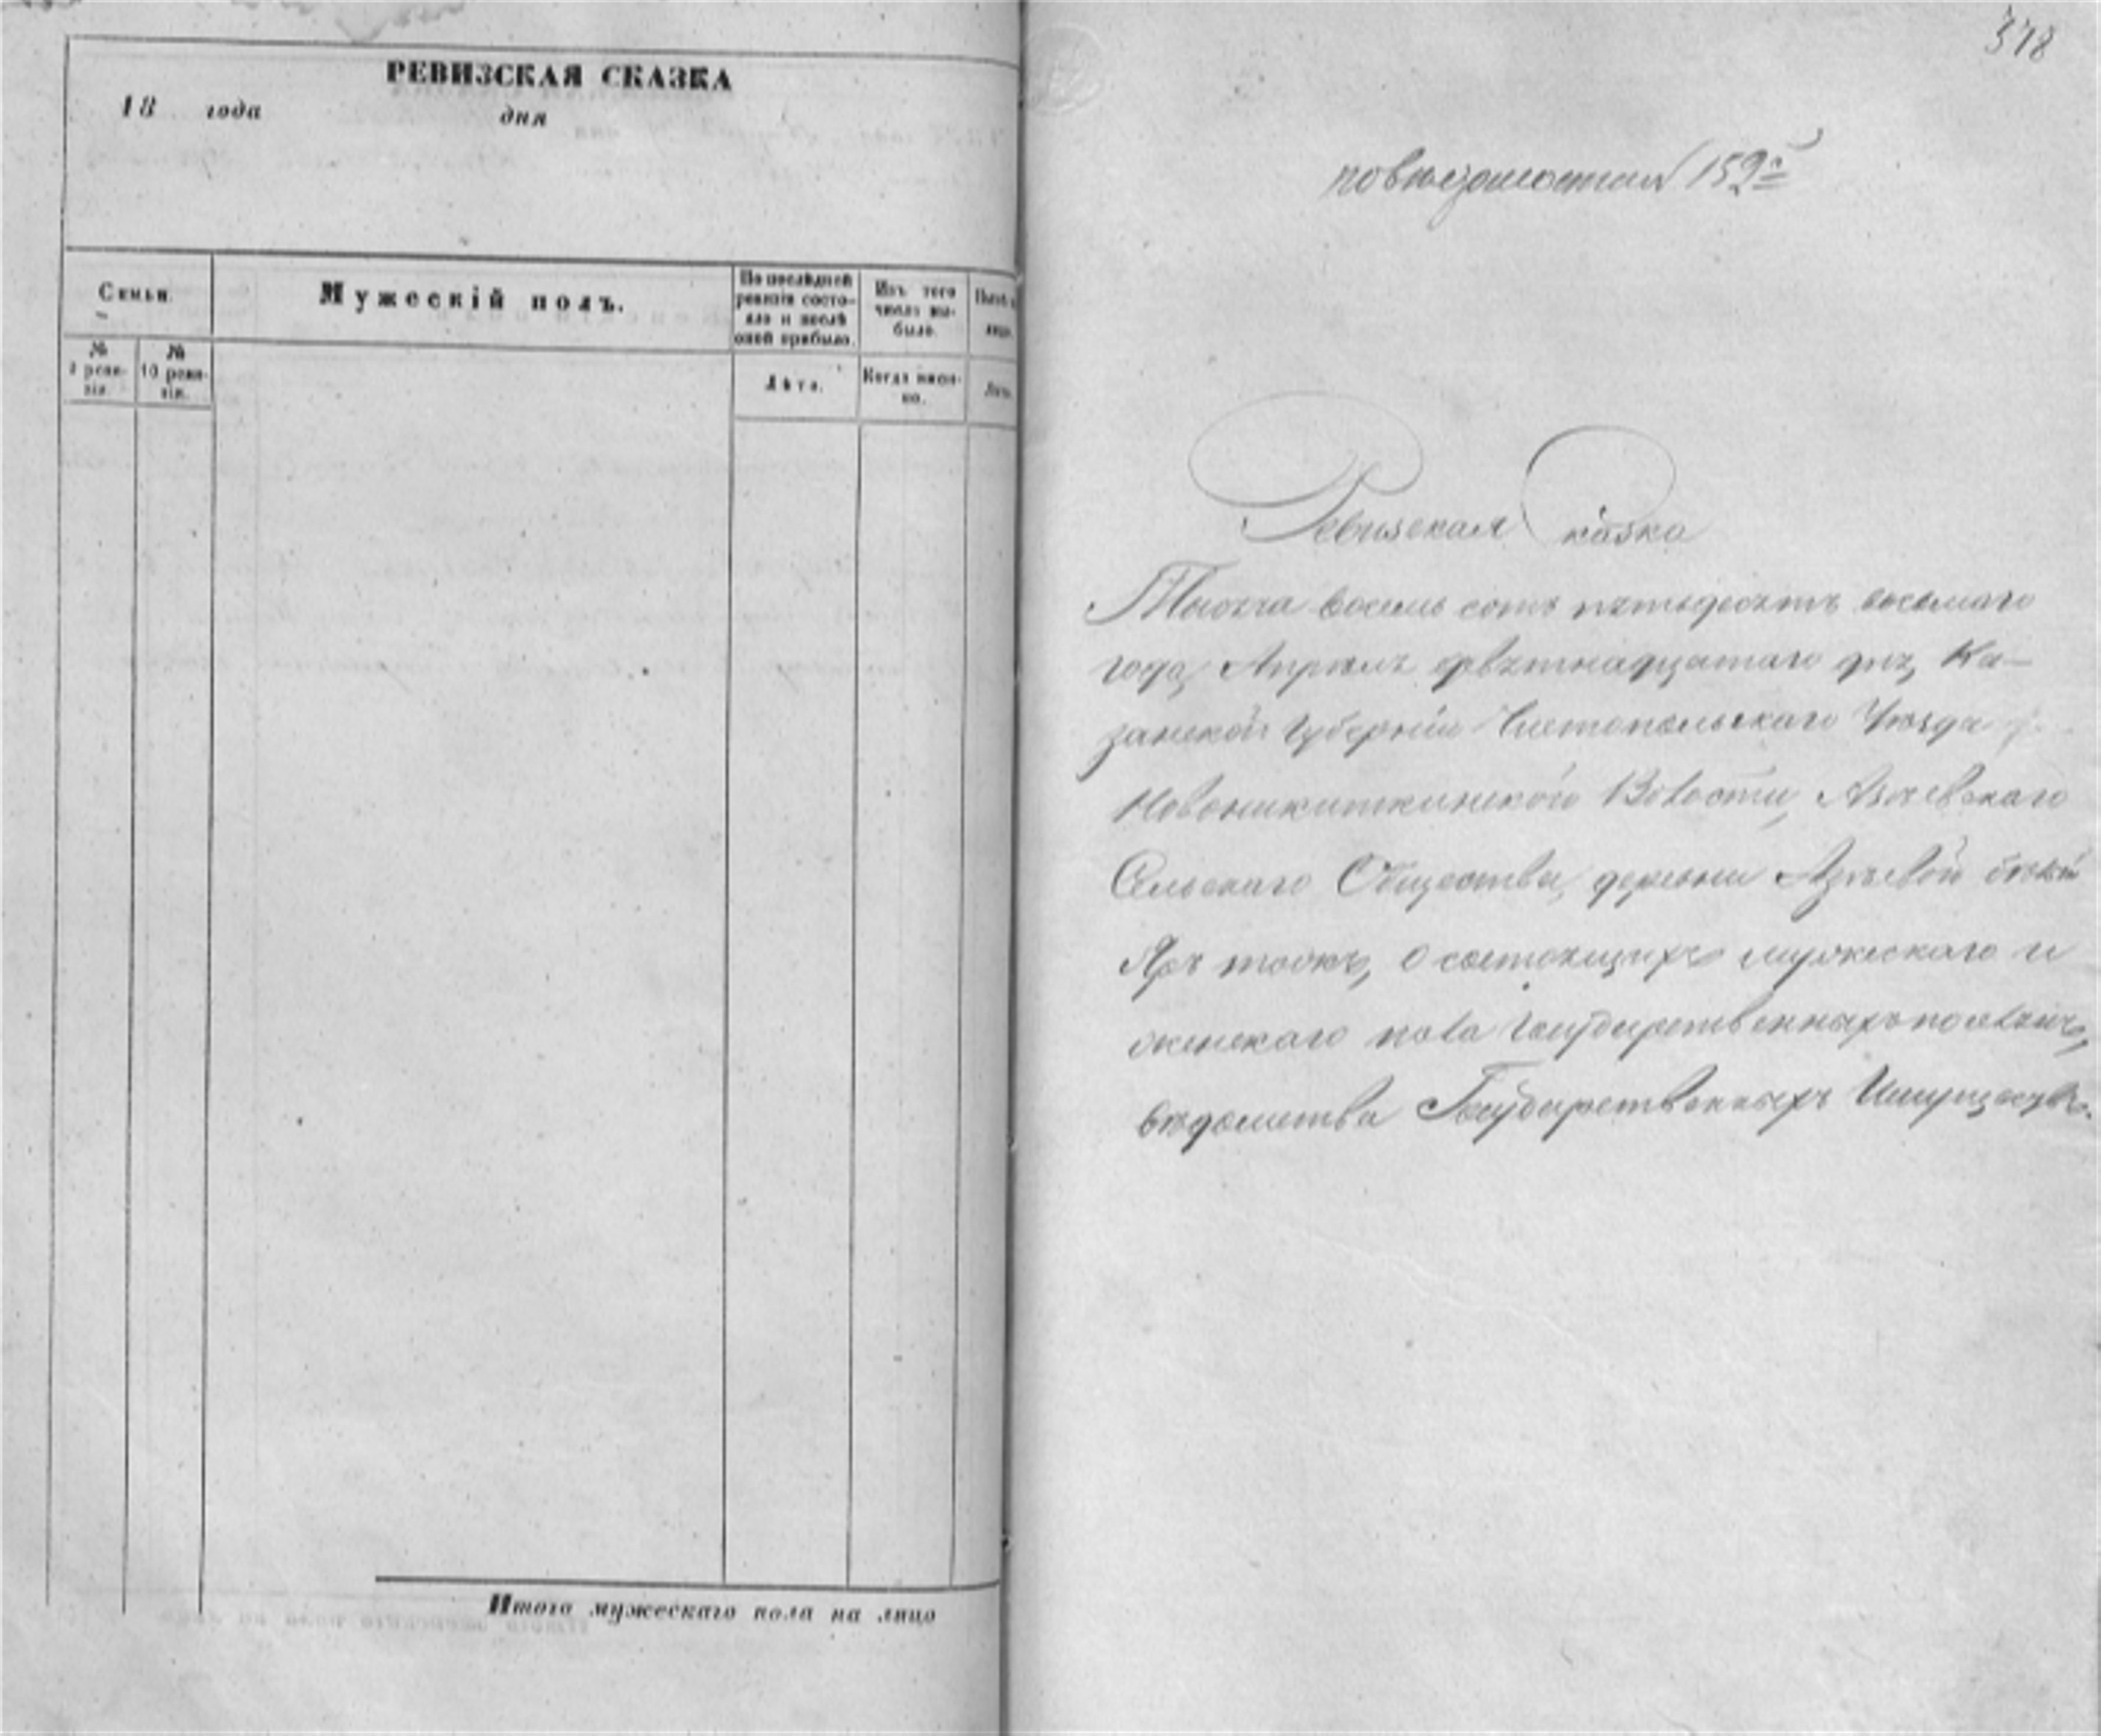 РЕВИЗСКАЯ СКАЗКА
18 года дня
Семьи.
Мужескій полъ.
По послѣдней ревизіи состояло и послѣ оной прибыло.
Изъ того числа выбыло.
№ ревизіи.
№ 10 ревизіи.
Лѣта.
Когда именно.
Лѣта.
Итого мужескаго пола на лицо
378
159
Ревизская Сказка
Тысяча восемь сотъ пятьдесятъ восьмаго
года, Апрѣля девятнадцатаго дня, Ка-
занской Губерніи Чистопольскаго Уѣзда
Новоникиткинской Волости, Азѣевскаго
Сельскаго Общества, деревни Азѣевой
о состоящихъ мужескаго и
женскаго пола Государственныхъ
вѣдомства Государственныхъ Имуществъ.